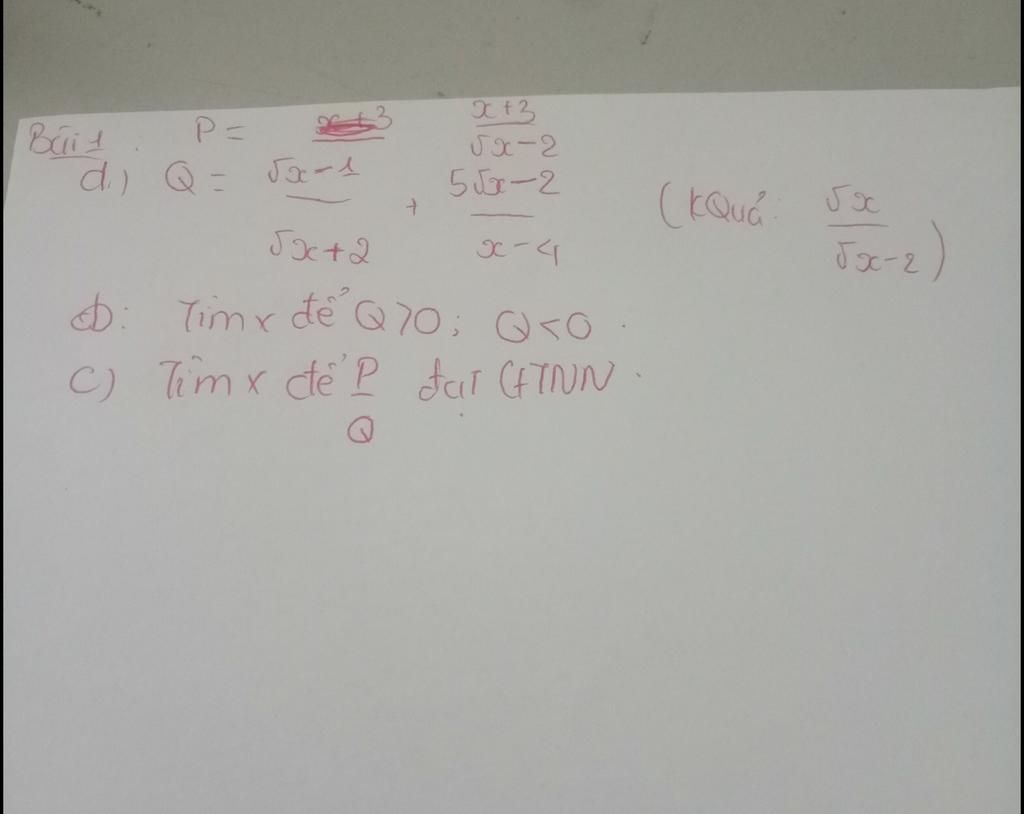 Bài 1: P = x+3 / √x-2
a.) Q = √x-1 / √x+2 + 5√x-2 / x-4 (KQuả: √x / √x-2)
b: Tìm x để Q>0; Q<0.
c) Tìm x để P / Q đạt GTNN.